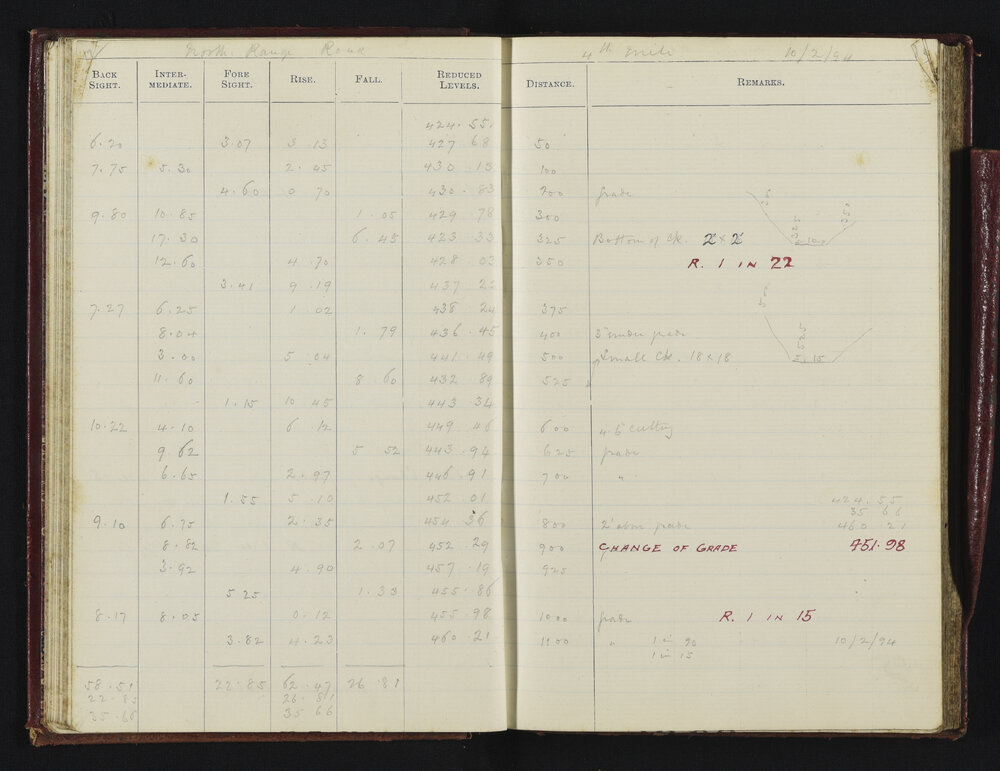 North Range Road 4th Mile 10/2/94
BACK SIGHT. INTER-MEDIATE. FORE SIGHT. RISE. FALL. REDUCED LEVELS. DISTANCE. REMARKS.
424.55
6.20 3.07 3.13 427.68 50
7.75 5.30 2.45 430.13 100
4.60 0.70 430.83 200 grade
9.80 10.85 1.05 429.78 300
17.30 6.45 423.33 325 Bottom of Ck. 2 x 2
12.60 4.70 428.03 350 R. 1 IN 22
3.41 9.19 437.22
7.27 6.25 1.02 438.24 375
8.04 1.79 436.45 400 3' under grade
3.00 5.04 441.49 500 Small Ck. 18 x 18
11.60 8.60 432.89 525 "
1.15 10.45 443.34
10.22 4.10 6.12 449.46 600 4.5 cutting
9.62 5.52 443.94 625 grade
6.65 2.97 446.91 700 "
1.55 5.10 452.01
424.55
35.66
9.10 6.75 2.35 454.36 800 2' above grade 460.21
8.82 2.07 452.29 900 CHANGE OF GRADE 451.98
3.92 4.90 457.19 925
5.25 1.33 455.86
8.17 8.05 0.12 455.98 1000 grade R. 1 IN 15
3.82 4.23 460.21 1100 " 1 in 20 10/2/94
1 in 15
58.51 22.85 62.47 26.81
22.85 26.81
35.66 35.66